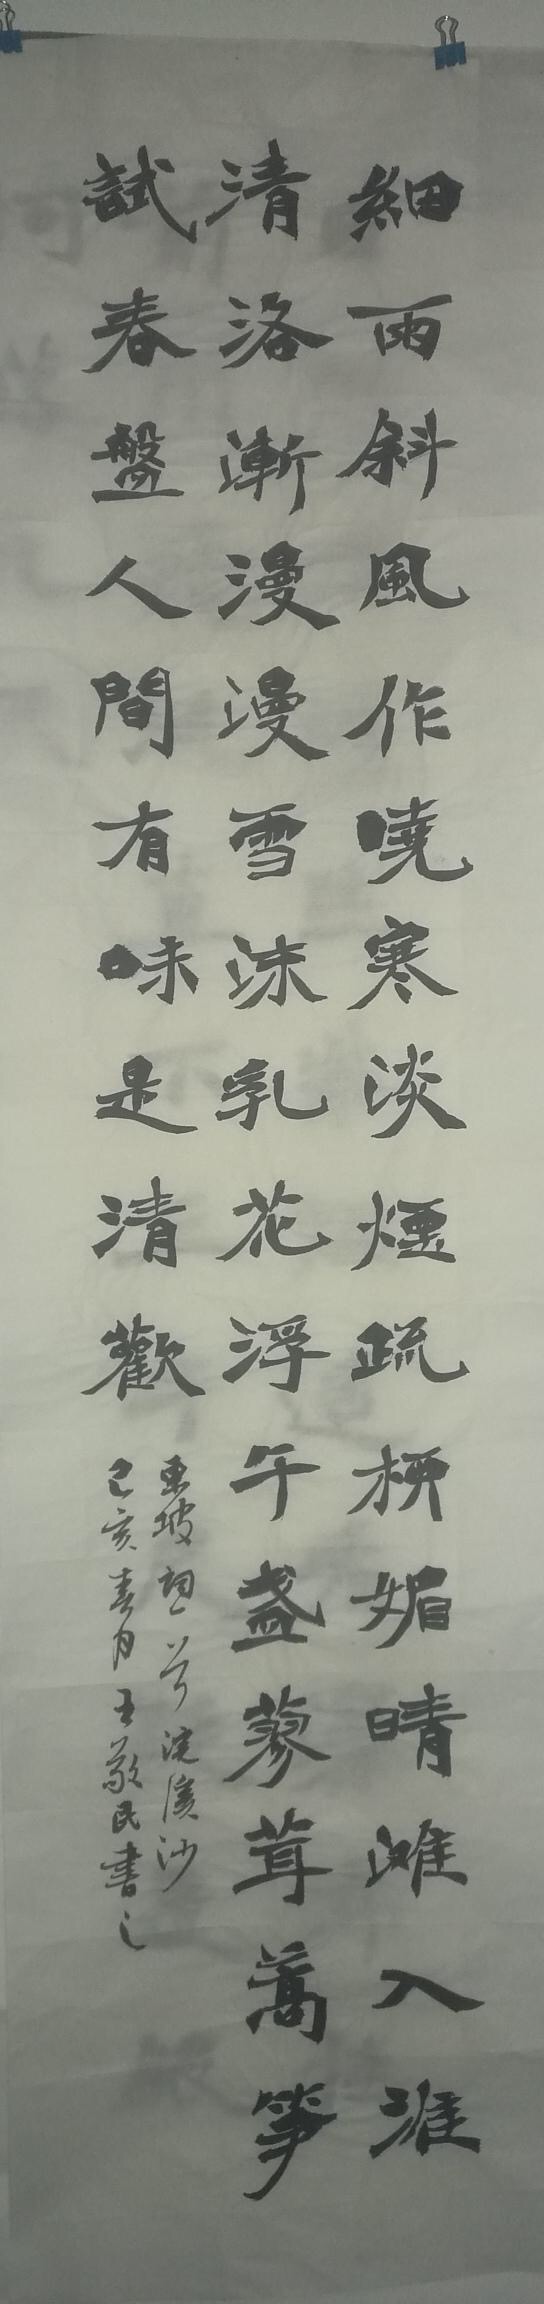 細雨斜風作曉寒淡煙疏柳媚晴滩入淮
清洛漸漫漫雪沫乳花浮午盞蓼茸蒿笋
試春盤人間有味是清歡
東坡詞一首浣溪沙
己亥春月王敬民書之